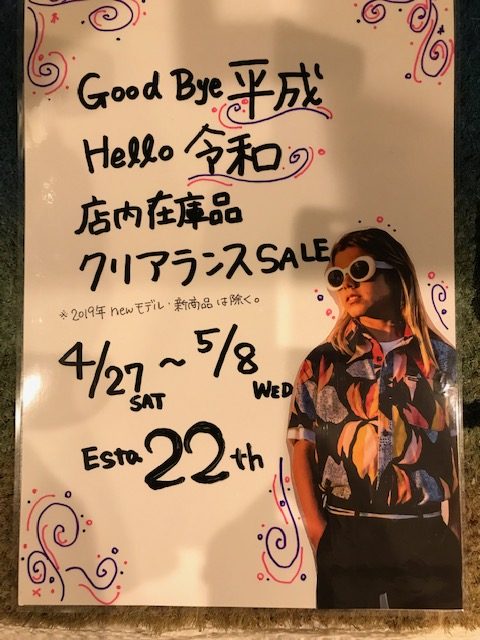 Good Bye 平成
Hello 令和
店内在庫品
クリアランスSALE
※2019年newモデル・新商品は除く。
4/27 SAT ～ 5/8 WED
Esta 22th